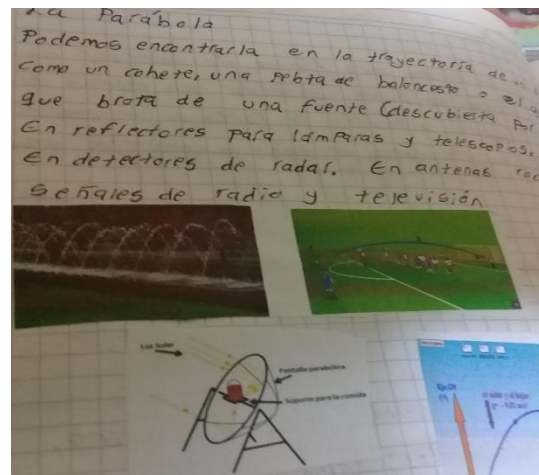 La Parábola
Podemos encontrarla en la trayectoria de
como un cohete, una pelota de baloncesto o el
que brota de una fuente (descubierta por
En reflectores para lámparas y telescopios.
En detectores de radar. En antenas
señales de radio y televisión
Luz Solar
Pantalla parabólica
Soporte para la comida